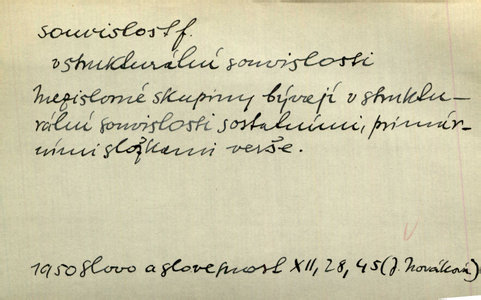 souvislost f.
v strukturální souvislosti
mezislovné skupiny bývají v struktu-
rální souvislosti s ostatními, primár-
ními složkami verše.
1950 Slovo a slovesnost XII, 28, 45 (J. Nováková)